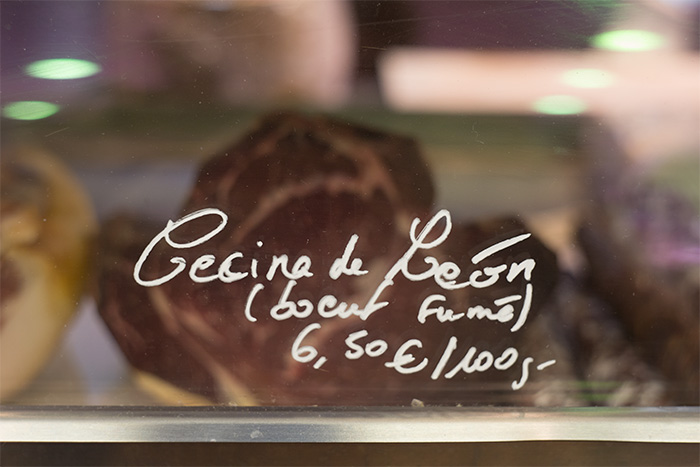 Cecina de León
(boeuf fumé)
6,50€/100g-